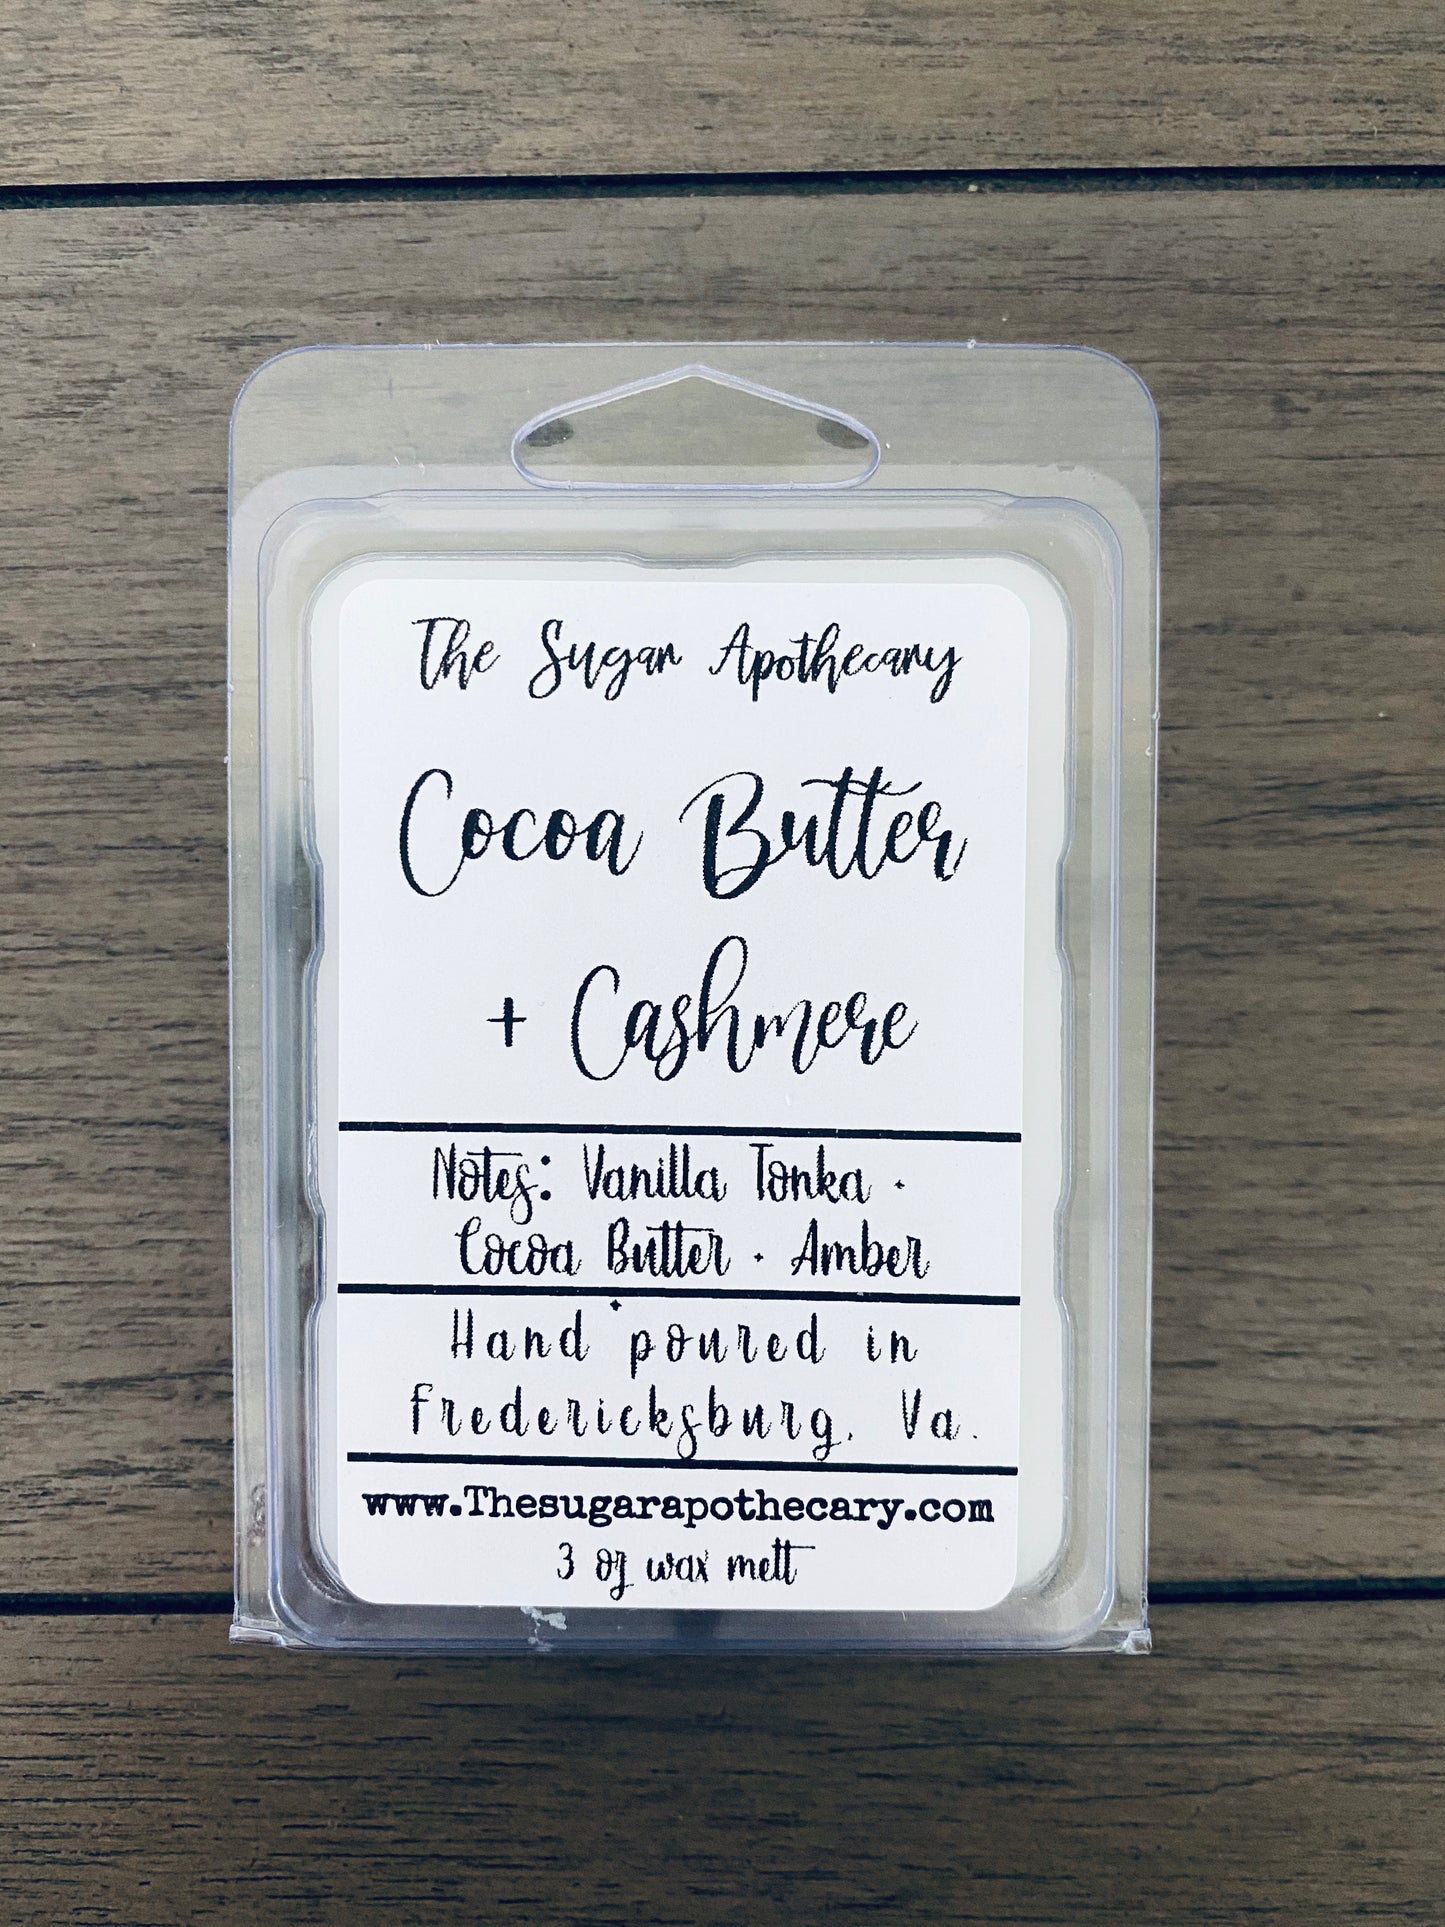 The Sugar Apothecary
Cocoa Butter
+ Cashmere
Notes: Vanilla Tonka •
Cocoa Butter • Amber
Hand poured in
Fredericksburg, Va.
www.Thesugarapothecary.com
3 oz wax melt